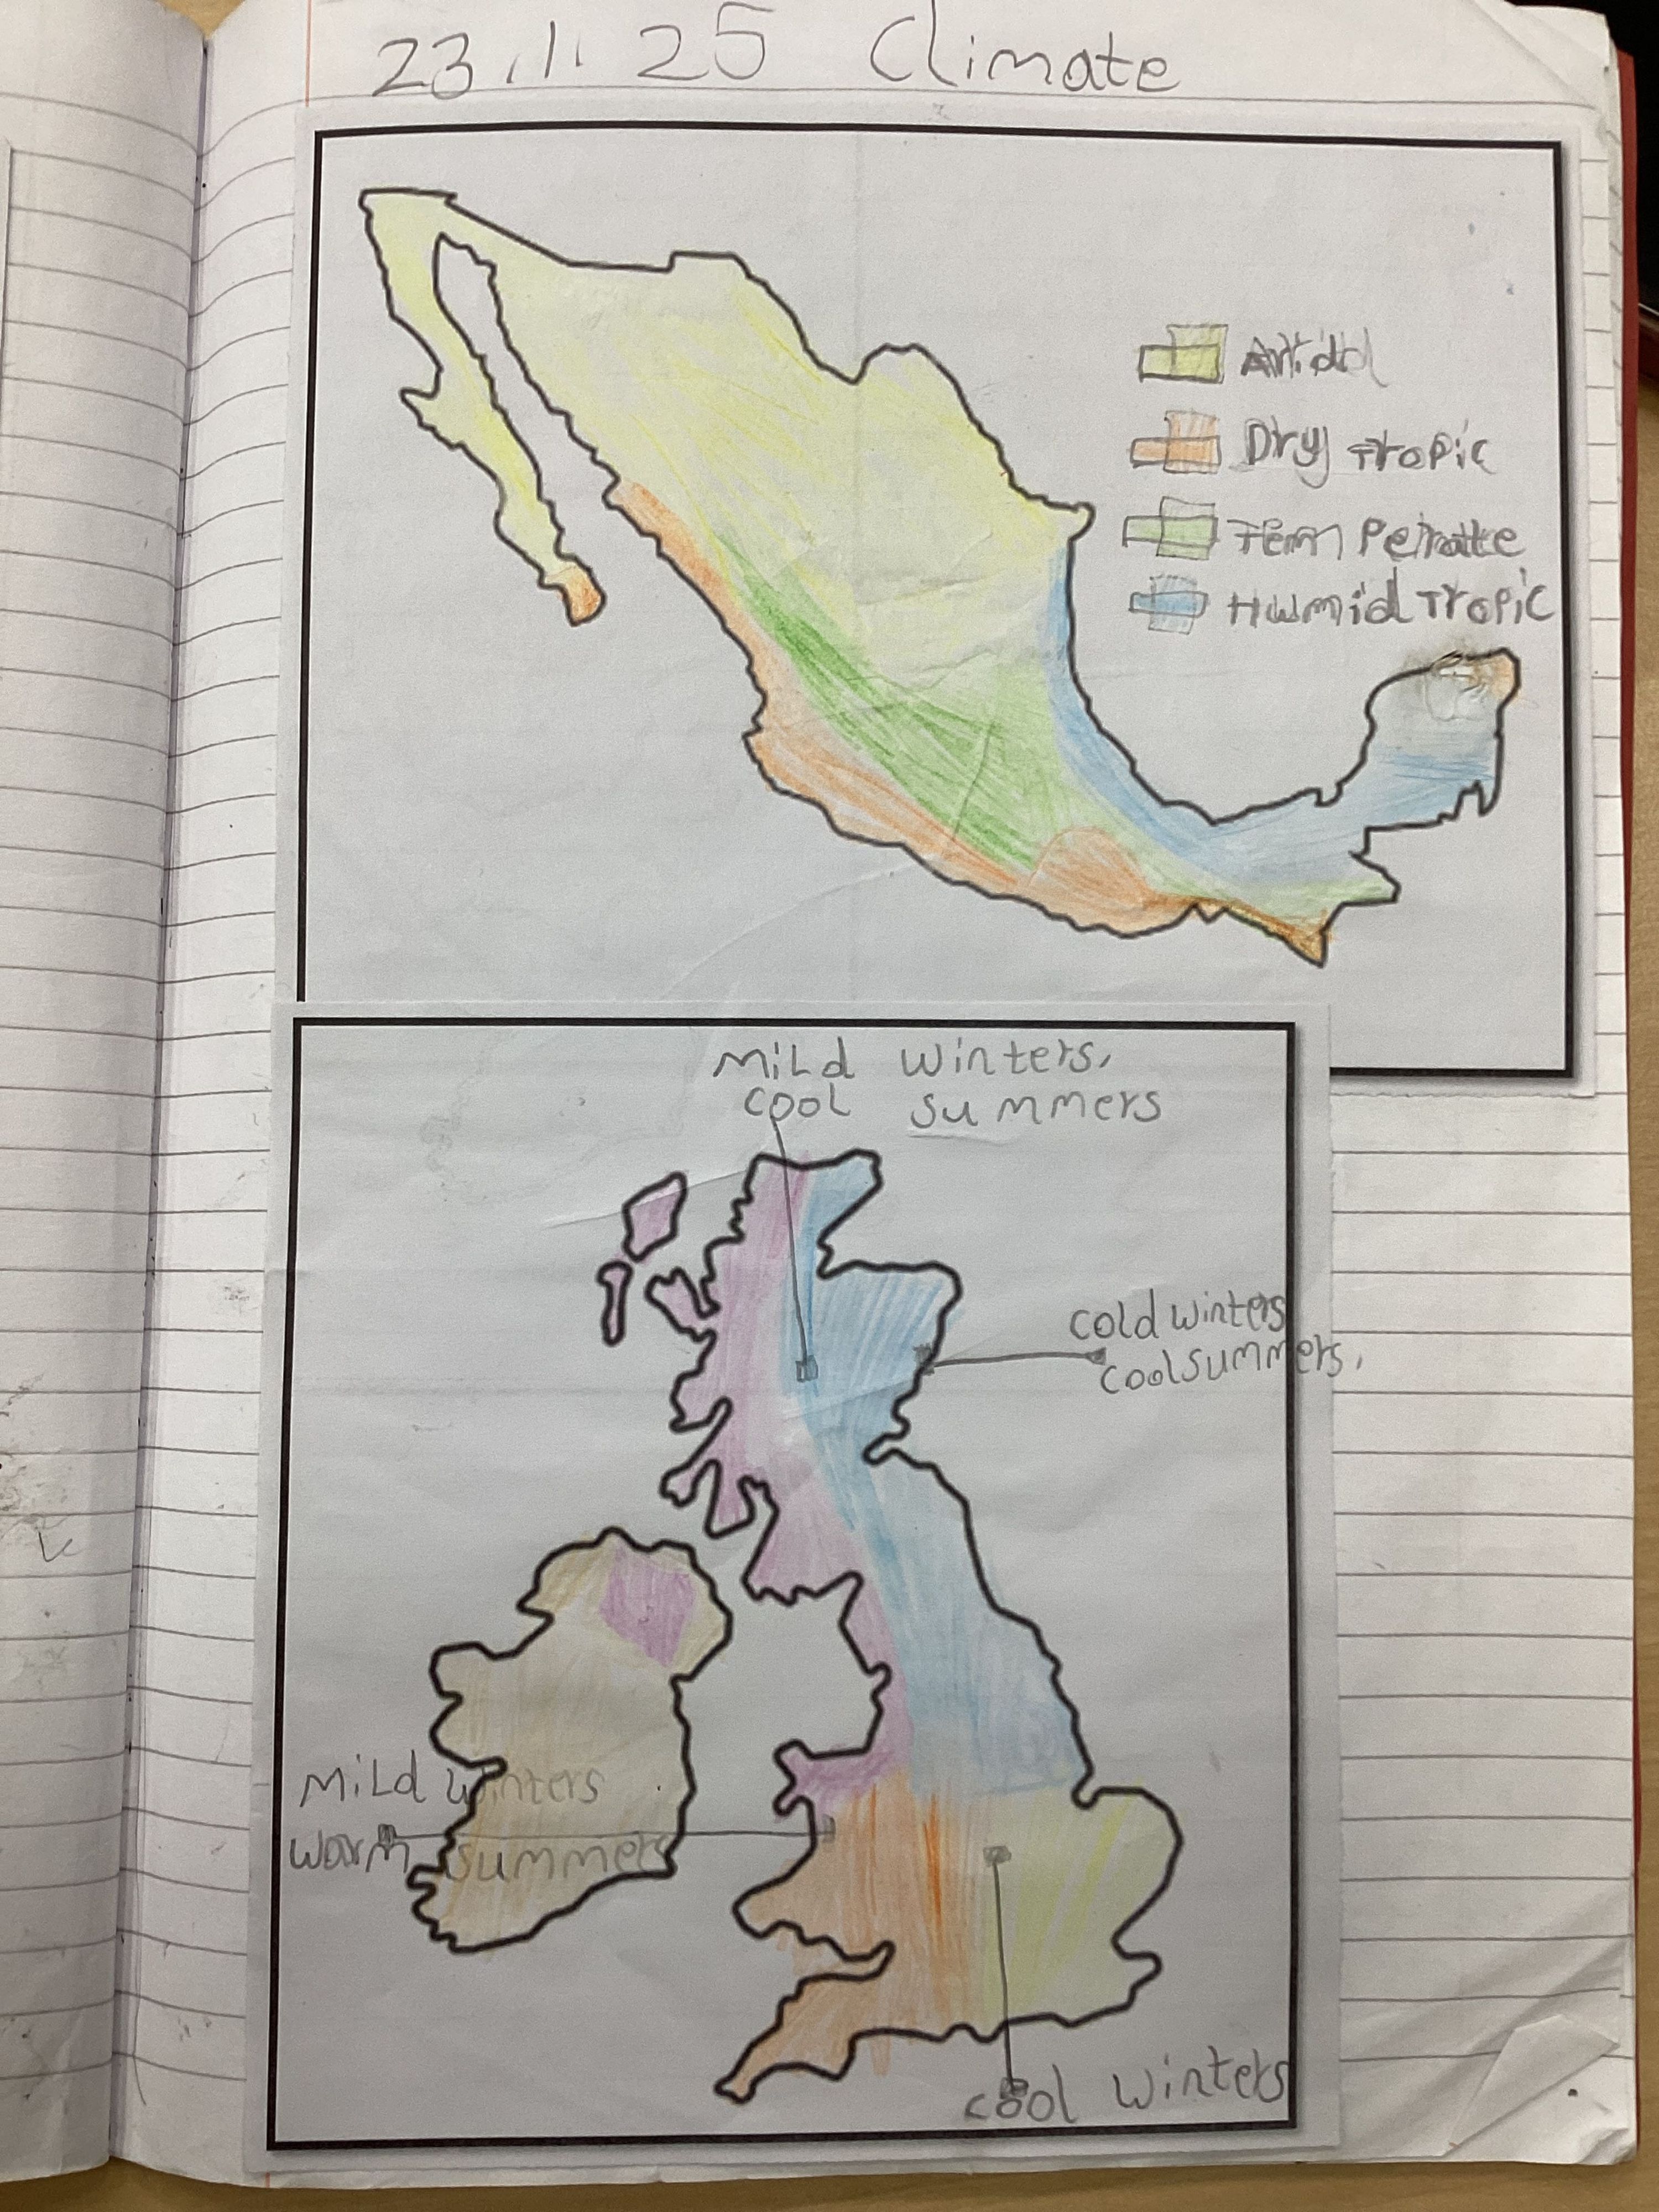 23.1.25 Climate
Arid
Dry Tropic
Temperate
Humid Tropic
Mild winters,
cool summers
cold winters
cool summers,
Mild winters
warm summers
cool winters